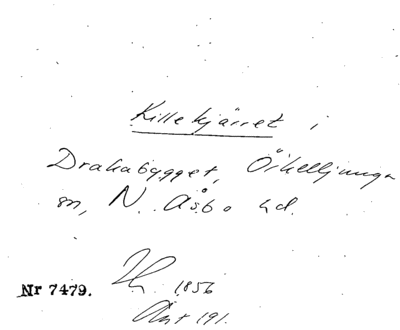 Killekjärret i
Drakabygget, Örkelljunga
sn, N. Åsbo hd.
1856
Nr 7479.
Akt 191.